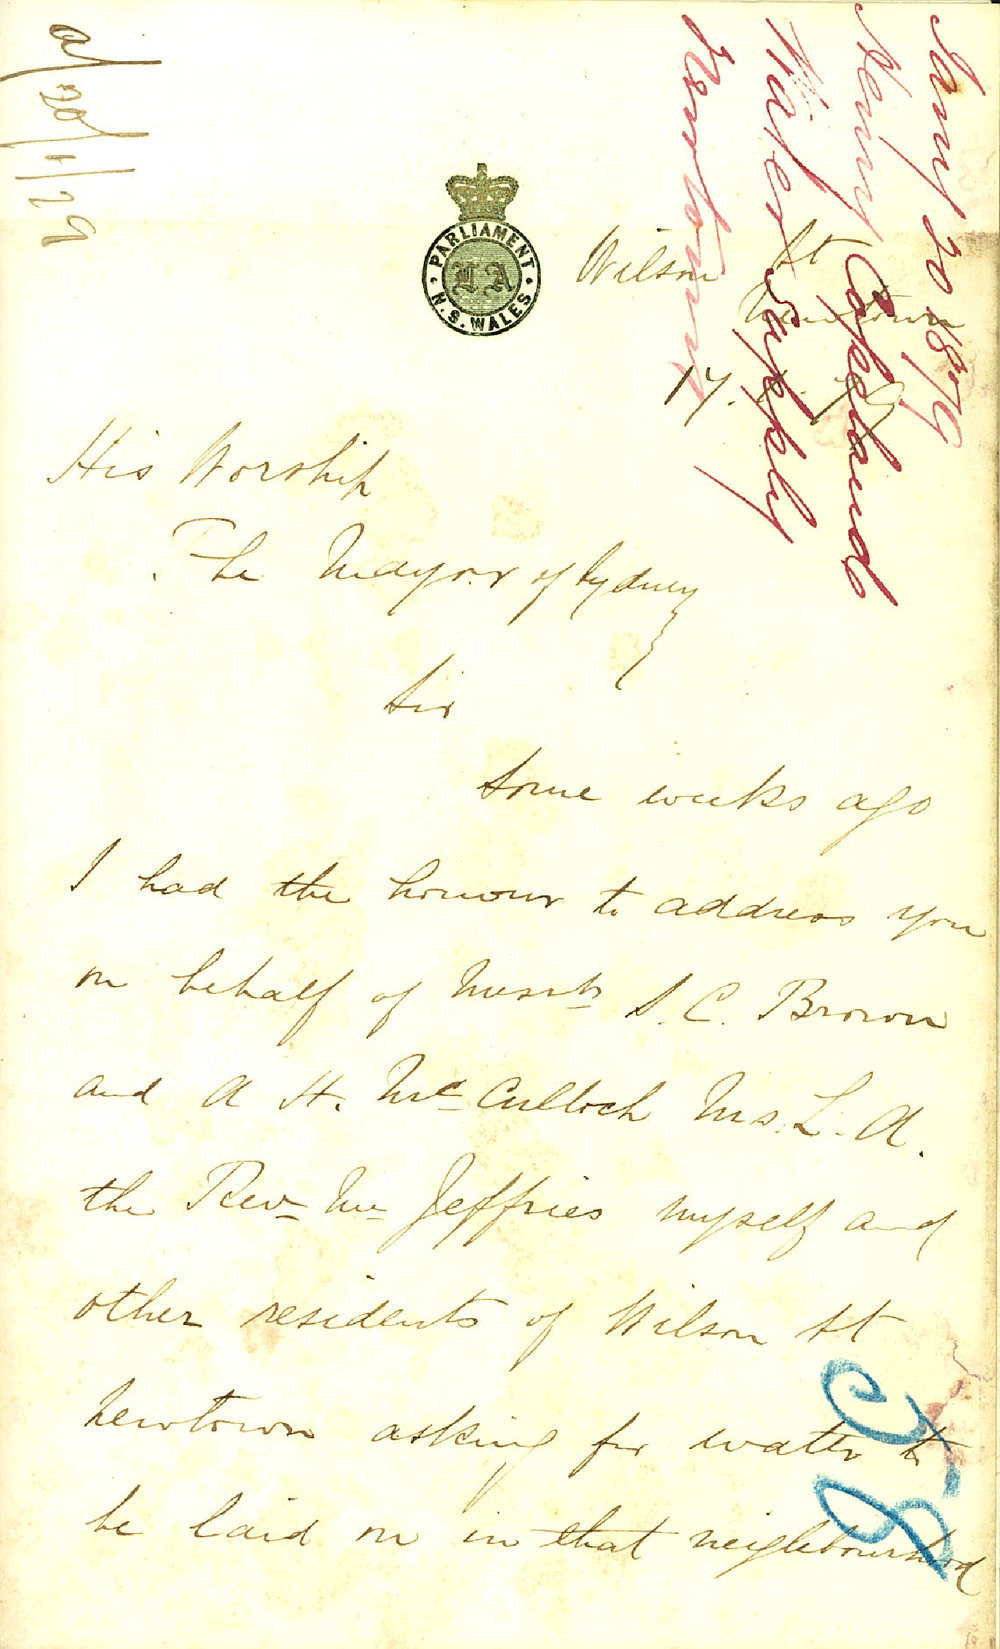 a/20/1/79
Jany 20 1879
Henry Copeland
Water Supply
Newtown
PARLIAMENT
LA
N.S. WALES
Wilson St
Newtown
17. 79
His Worship
The Mayor of Sydney
Sir
Some weeks ago
I had the honour to address you
on behalf of Messrs S. C. Brown
and A H. McCulloch Ms. L. A.
the Revd Mr Jeffries myself and
other residents of Wilson St
Newtown asking for water to
be laid on in that neighbourhood